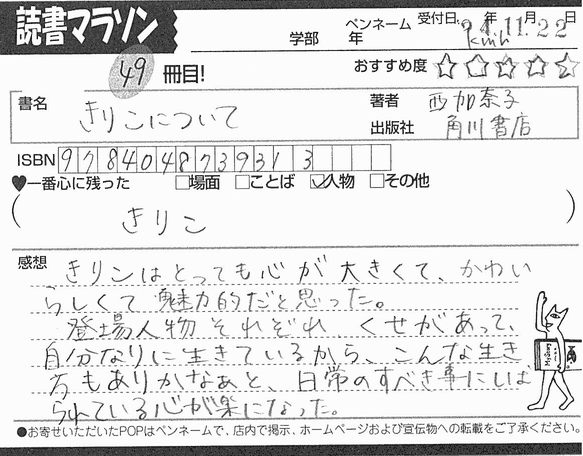 読書マラソン
学部 年 ペンネーム kmh 受付日 21年11月22日
49冊目!
おすすめ度 ☆☆☆☆☆
書名 きりこについて
著者 西加奈子
出版社 角川書店
ISBN 9784048739313
♥一番心に残った □場面 □ことば ☑人物 □その他
( きりこ )
感想 きりこはとっても心が大きくて、かわい
らしくて魅力的だと思った。
登場人物それぞれ、くせがあって、
自分なりに生きているから、こんな生き
方もありかなあと、日常のすべき事にしば
られている心が楽になった。
●お寄せいただいたPOPはペンネームで、店内で掲示、ホームページおよび宣伝物への転載をご了承ください。